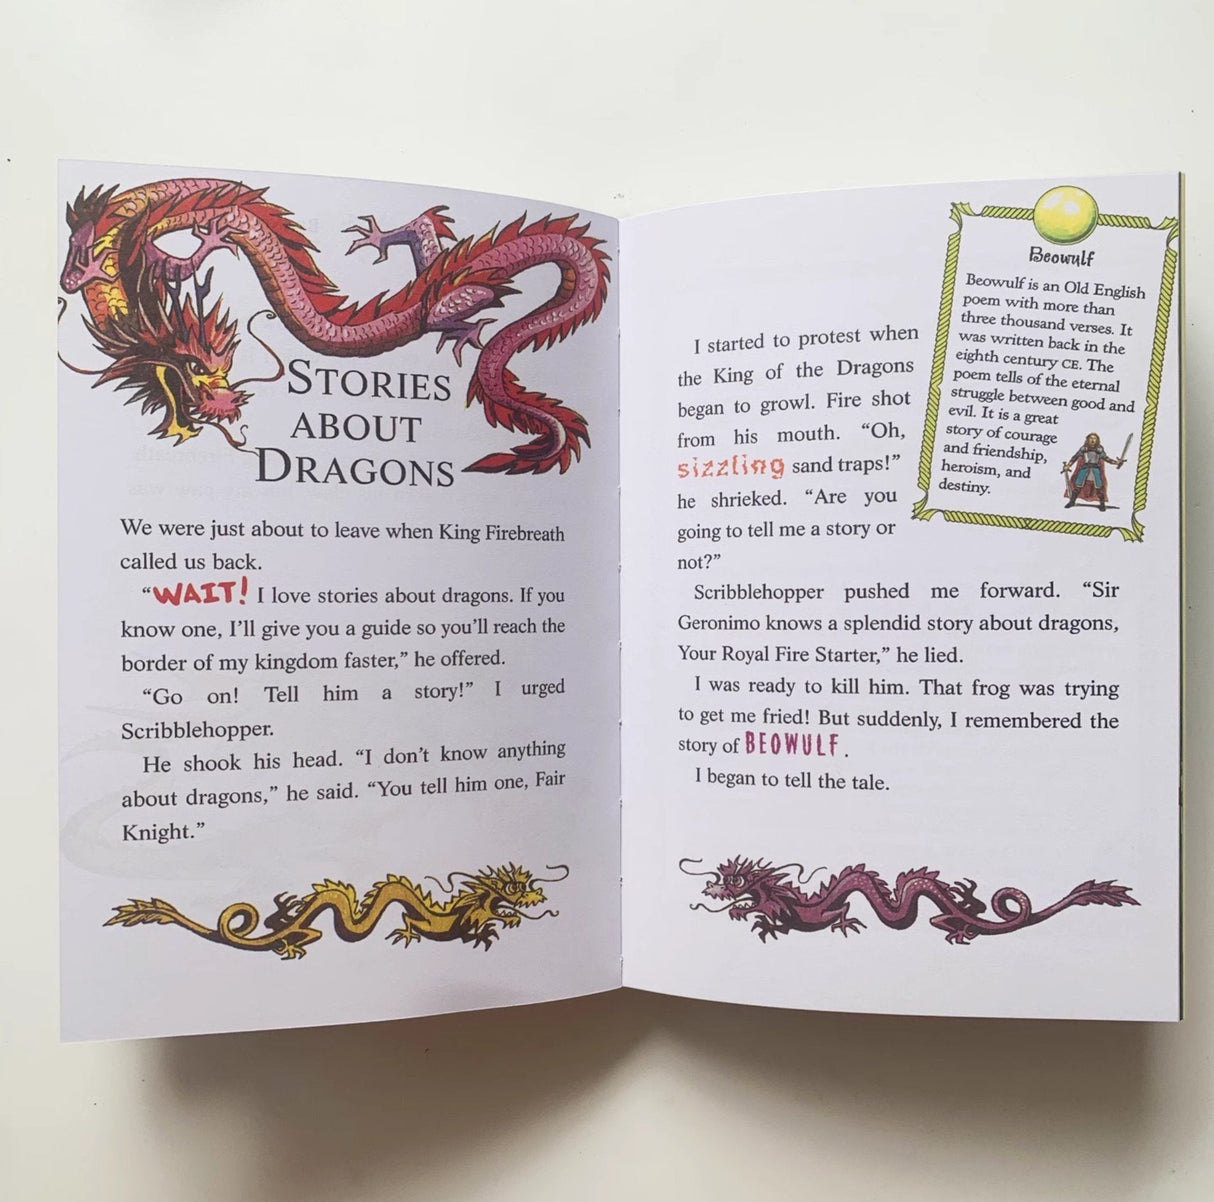 STORIES
ABOUT
DRAGONS
We were just about to leave when King Firebreath
called us back.
“WAIT! I love stories about dragons. If you
know one, I’ll give you a guide so you’ll reach the
border of my kingdom faster,” he offered.
“Go on! Tell him a story!” I urged
Scribblehopper.
He shook his head. “I don’t know anything
about dragons,” he said. “You tell him one, Fair
Knight.”
I started to protest when
the King of the Dragons
began to growl. Fire shot
from his mouth. “Oh,
sizzling sand traps!”
he shrieked. “Are you
going to tell me a story or
not?”
Scribblehopper pushed me forward. “Sir
Geronimo knows a splendid story about dragons,
Your Royal Fire Starter,” he lied.
I was ready to kill him. That frog was trying
to get me fried! But suddenly, I remembered the
story of BEOWULF.
I began to tell the tale.
Beowulf
Beowulf is an Old English
poem with more than
three thousand verses. It
was written back in the
eighth century CE. The
poem tells of the eternal
struggle between good and
evil. It is a great
story of courage
and friendship,
heroism, and
destiny.